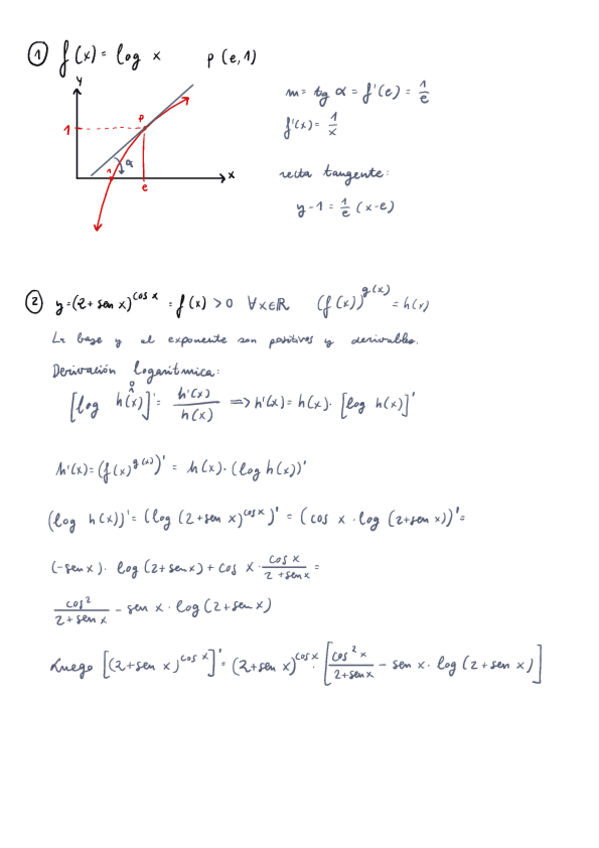 ① f(x) = log x    p (e, 1)
y
m = tg α = f'(e) = 1/e
f'(x) = 1/x
1
p
α
1
x
e
recta tangente:
y - 1 = 1/e (x - e)
② y = (2 + sen x)^cos x = f(x) > 0  ∀x∈ℝ  (f(x))^g(x) = h(x)
La base y el exponente son positivos y derivables.
Derivación logarítmica:
[log h(x)]' = h'(x)/h(x) => h'(x) = h(x) · [log h(x)]'
h'(x) = (f(x)^g(x))' = h(x) · (log h(x))'
(log h(x))' = (log (2 + sen x)^cos x)' = (cos x · log (2 + sen x))' =
(-sen x) · log (2 + sen x) + cos x · cos x/(2 + sen x) =
cos²/(2 + sen x) - sen x · log (2 + sen x)
Luego [(2 + sen x)^cos x]' = (2 + sen x)^cos x · [cos² x/(2 + sen x) - sen x · log (2 + sen x)]